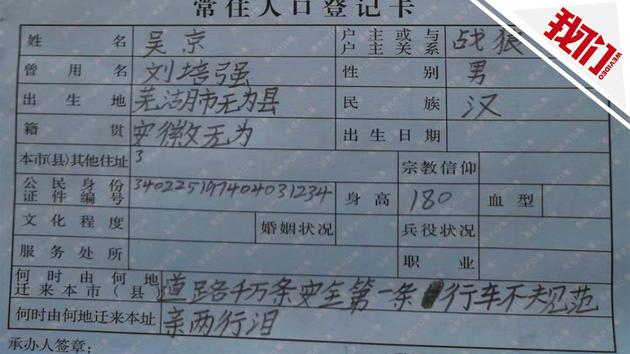 常住人口登记卡
我们
WEVIDEO
姓名 吴京 户主或与户主关系 战狼
曾用名 刘培强 性别 男
出生地 芜湖市无为县 民族 汉
籍贯 安徽无为 出生日期
本市(县)其他住址 3 宗教信仰
公民身份证件编号 340225197404031234 身高 180 血型
文化程度 婚姻状况 兵役状况
服务处所 职业
何时由何地迁来本市(县) 道路千万条安全第一条 行车不夫见范
何时由何地迁来本址 亲两行泪
承办人签章: